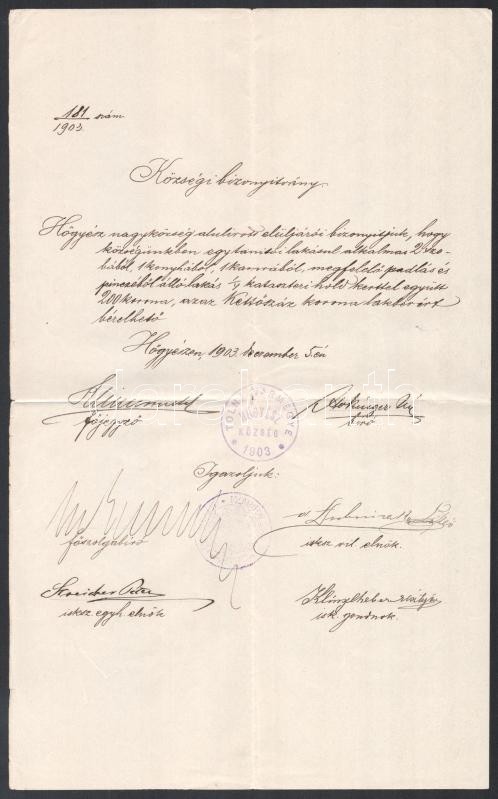 181 szám
1903.
Községi bizonyitvány.
Hőgyész nagyközség alulirott elüljárói bizonyitjuk, hogy
községünkben egy tanitói lakásul alkalmas 2 szo-
bából, 1 konyhából, 1 kamrából, megfelelő padlás és
pinczéből álló lakás 1/4 kataszteri hold kerttel együtt
200 korona, azaz Kettőszáz korona lakbérért
bérelhető
Hőgyészen, 1903. deczember 5.én
főjegyző
biró
TOLNA VÁRMEGYE
HŐGYÉSZ
KÖZSÉG
1903
Igazoljuk:
főszolgabiró
isksz. vil. elnök.
Streicher Péter
isksz. egyh. elnök
Klinglheber Mihály
isk. gondnok.